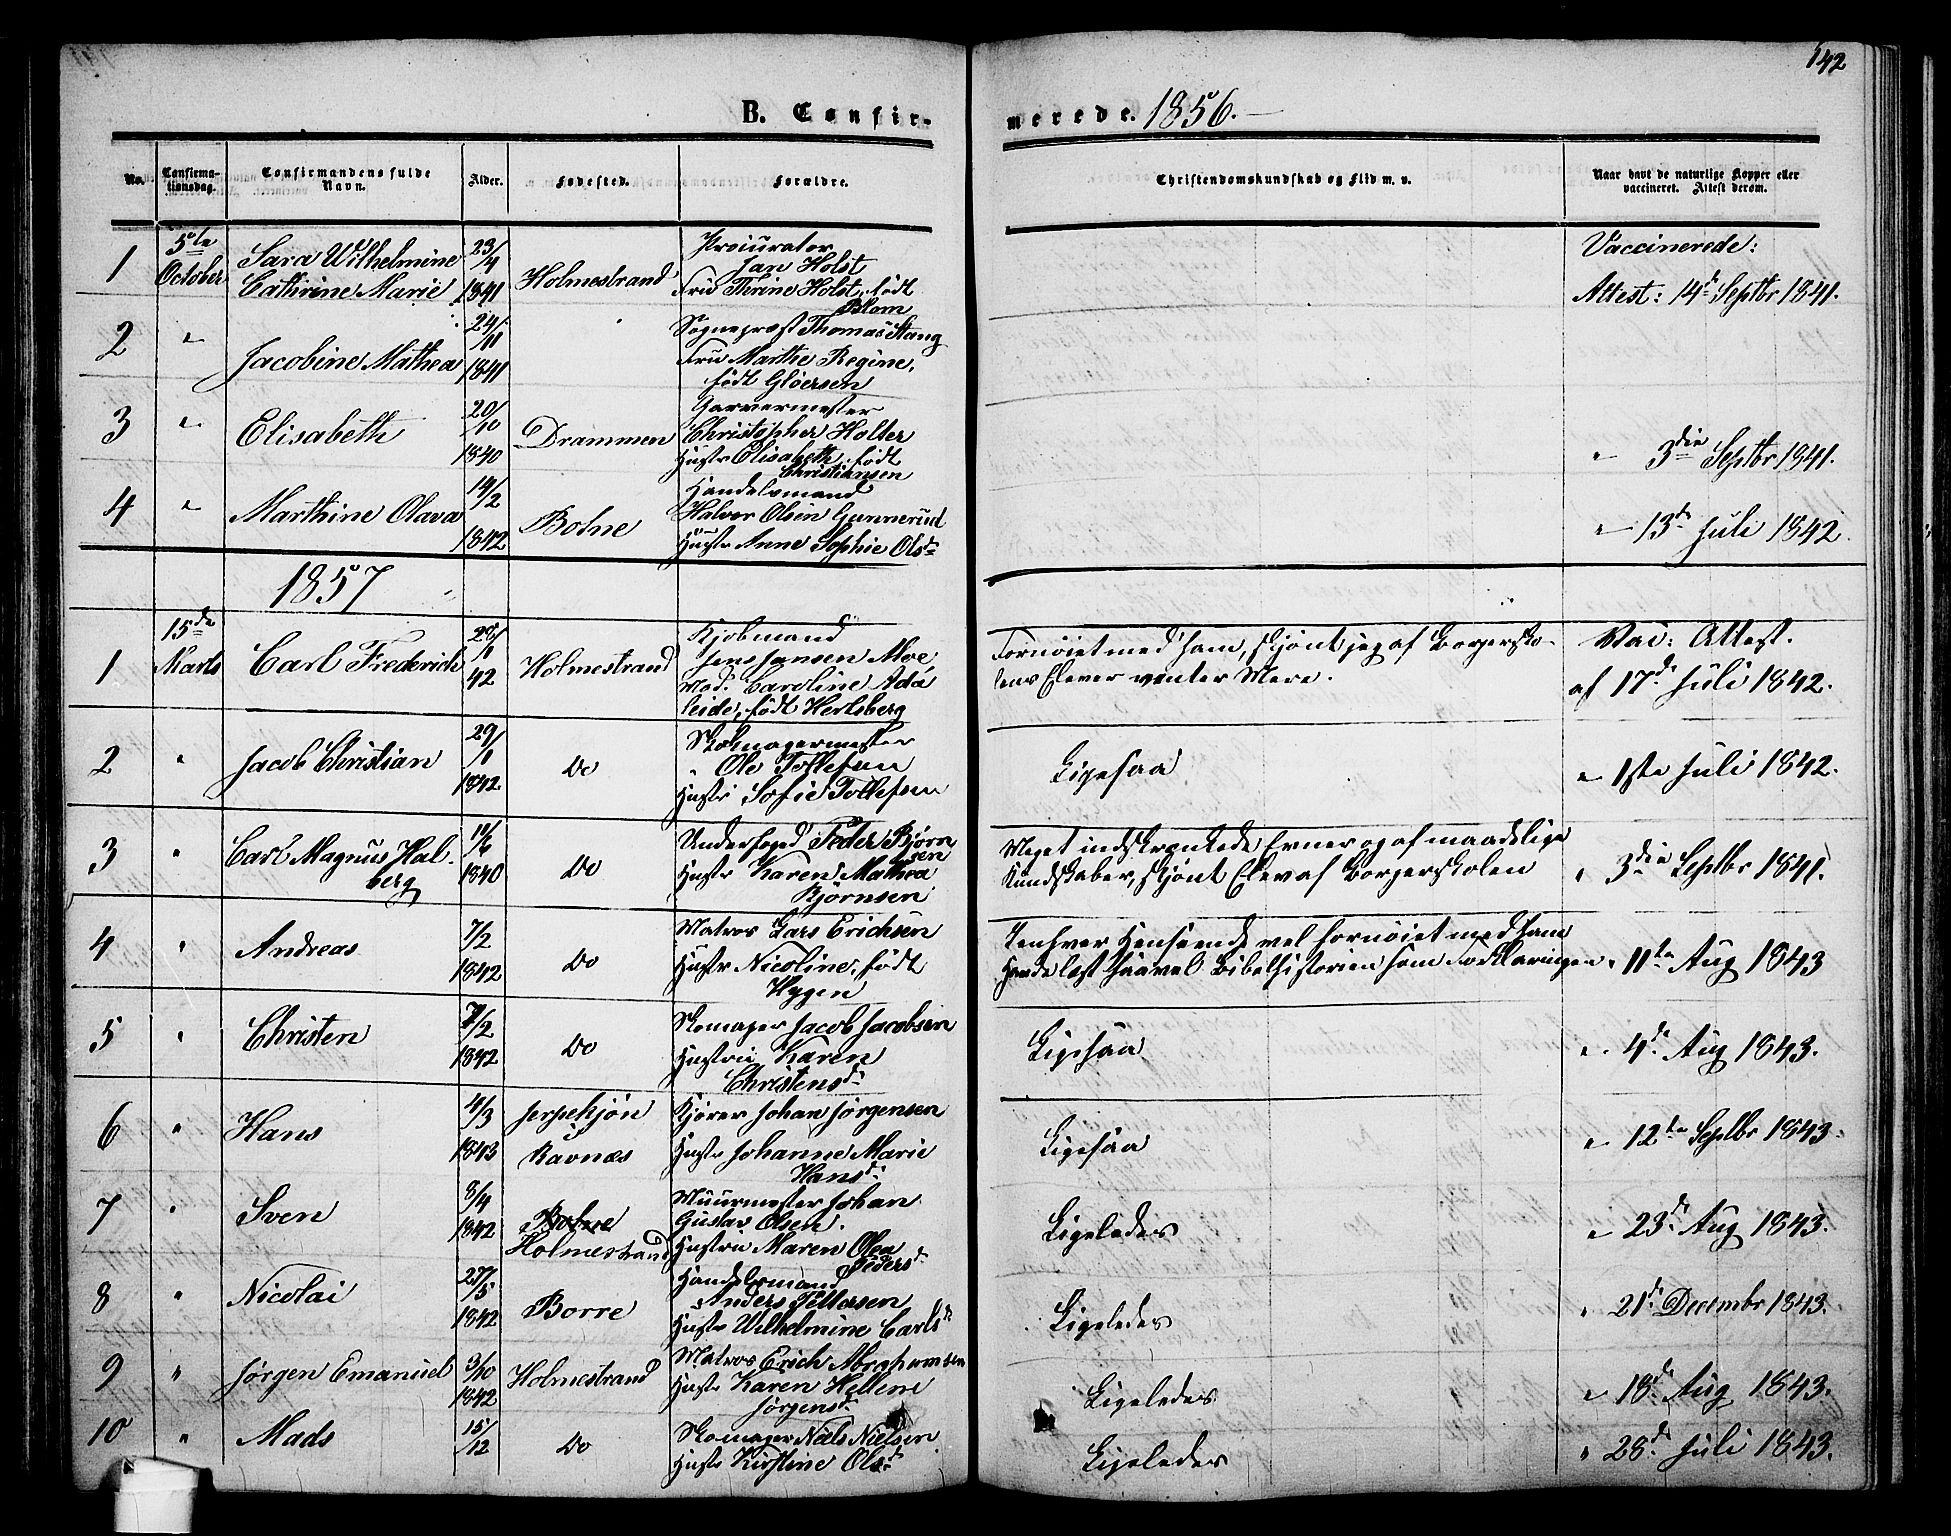 142
B. Confirmerede. 1856.
No. Confirmationsdag. Confirmandens fulde Navn. Alder. Fødested. Forældre. Christendomskundskab og Flid m. v. Naar havt de naturlige Kopper eller vaccineret. Attest derom.
1 5te October Sara Wilhelmine Cathrine Marie 23/4 1841 Holmestrand
Procurator
Jan Holst
Fru Thrine Holst, født
Blom
Vaccinerede:
Attest: 14de Septbr 1841.
2 " Jacobine Mathea 24/11 1841
Sognepræst Thomas Stang
Fru Marthe Regine,
født Gløersen
3 " Elisabeth 20/10 1840 Drammen
Garvermester
Christopher Holter
Hustr Elisabeth, født
Christiansen
" 3die Septbr 1841.
4 " Marthine Olava 14/2 1842 Botne
Handelsmand
Halvor Olsen Gunnerud
Hustr Anne Sophie Olsd.
" 13de Juli 1842.
1857
1 15de Marts Carl Frederich 28/1 42 Holmestrand
Kjøbmand
Jens Jansen Moe,
Mod. Caroline Ada
leide, født Hertsberg
Fornøiet med ham, skjønt jeg af Borgersko-
lens Elever venter Mere.
Vac: Attest.
af 17de Juli 1842.
2 " Jacob Christian 29/1 1842. Do
Skomagermester
Ole Tollefsen
Hustr Sofie Tollefsen
Ligesaa
" 1ste Juli 1842.
3 " Carl Magnus Hal-
berg 11/6 1840 Do
Underfoged Peder Bjørn
sen
Hustr Karen Mathea
Bjørnsen
Meget indskrænkede Evner og af maadelige
Kundskaber, skjønt Elev af Borgerskolen
" 3die Septbr 1841.
4 " Andreas 7/2 1842 Do
Matros Lars Erichsen
Hustr Nicoline, født
Hygen
I enhver Henseende vel fornøiet med ham
Havde læst saavel Bibelhistorien som Forklaringen
" 11te Aug 1843
5 " Christen 7/2 1842 Do
Skomager Jacob Jacobsen
Hustru Karen
Christensd.
Ligesaa
" 4de Aug 1843.
6 " Hans 4/3 1843 Jerpekjøn
Ravnæs
Kjører Johan Jørgensen
Hustr Johanne Marie
Hansd.
Ligesaa
" 12te Septbr 1843.
7 " Sven 8/4 1842 Botne
Holmestrand
Muurmester Johan
Gustav Olsen.
Hustru Maren Olea
Pedersd.
Ligeledes
" 23de Aug 1843.
8 " Nicolai 27/5 1842 Borre
Handelsmand
Anders Pettersen
Hustr Wilhelmine Carlsd.
Ligeledes
" 21de Decembr 1843.
9 " Jørgen Emanuel 3/10 1842 Holmestrand
Matros Erich Abrahamsen
Hustr Karen Hellene
Jørgensd.
Ligeledes.
" 18de Aug 1843.
10 " Mads 15/12 Do
Skomager Niels Nielsen
Hustr Kirstine Olsd.
Ligeledes
" 28de Juli 1843.